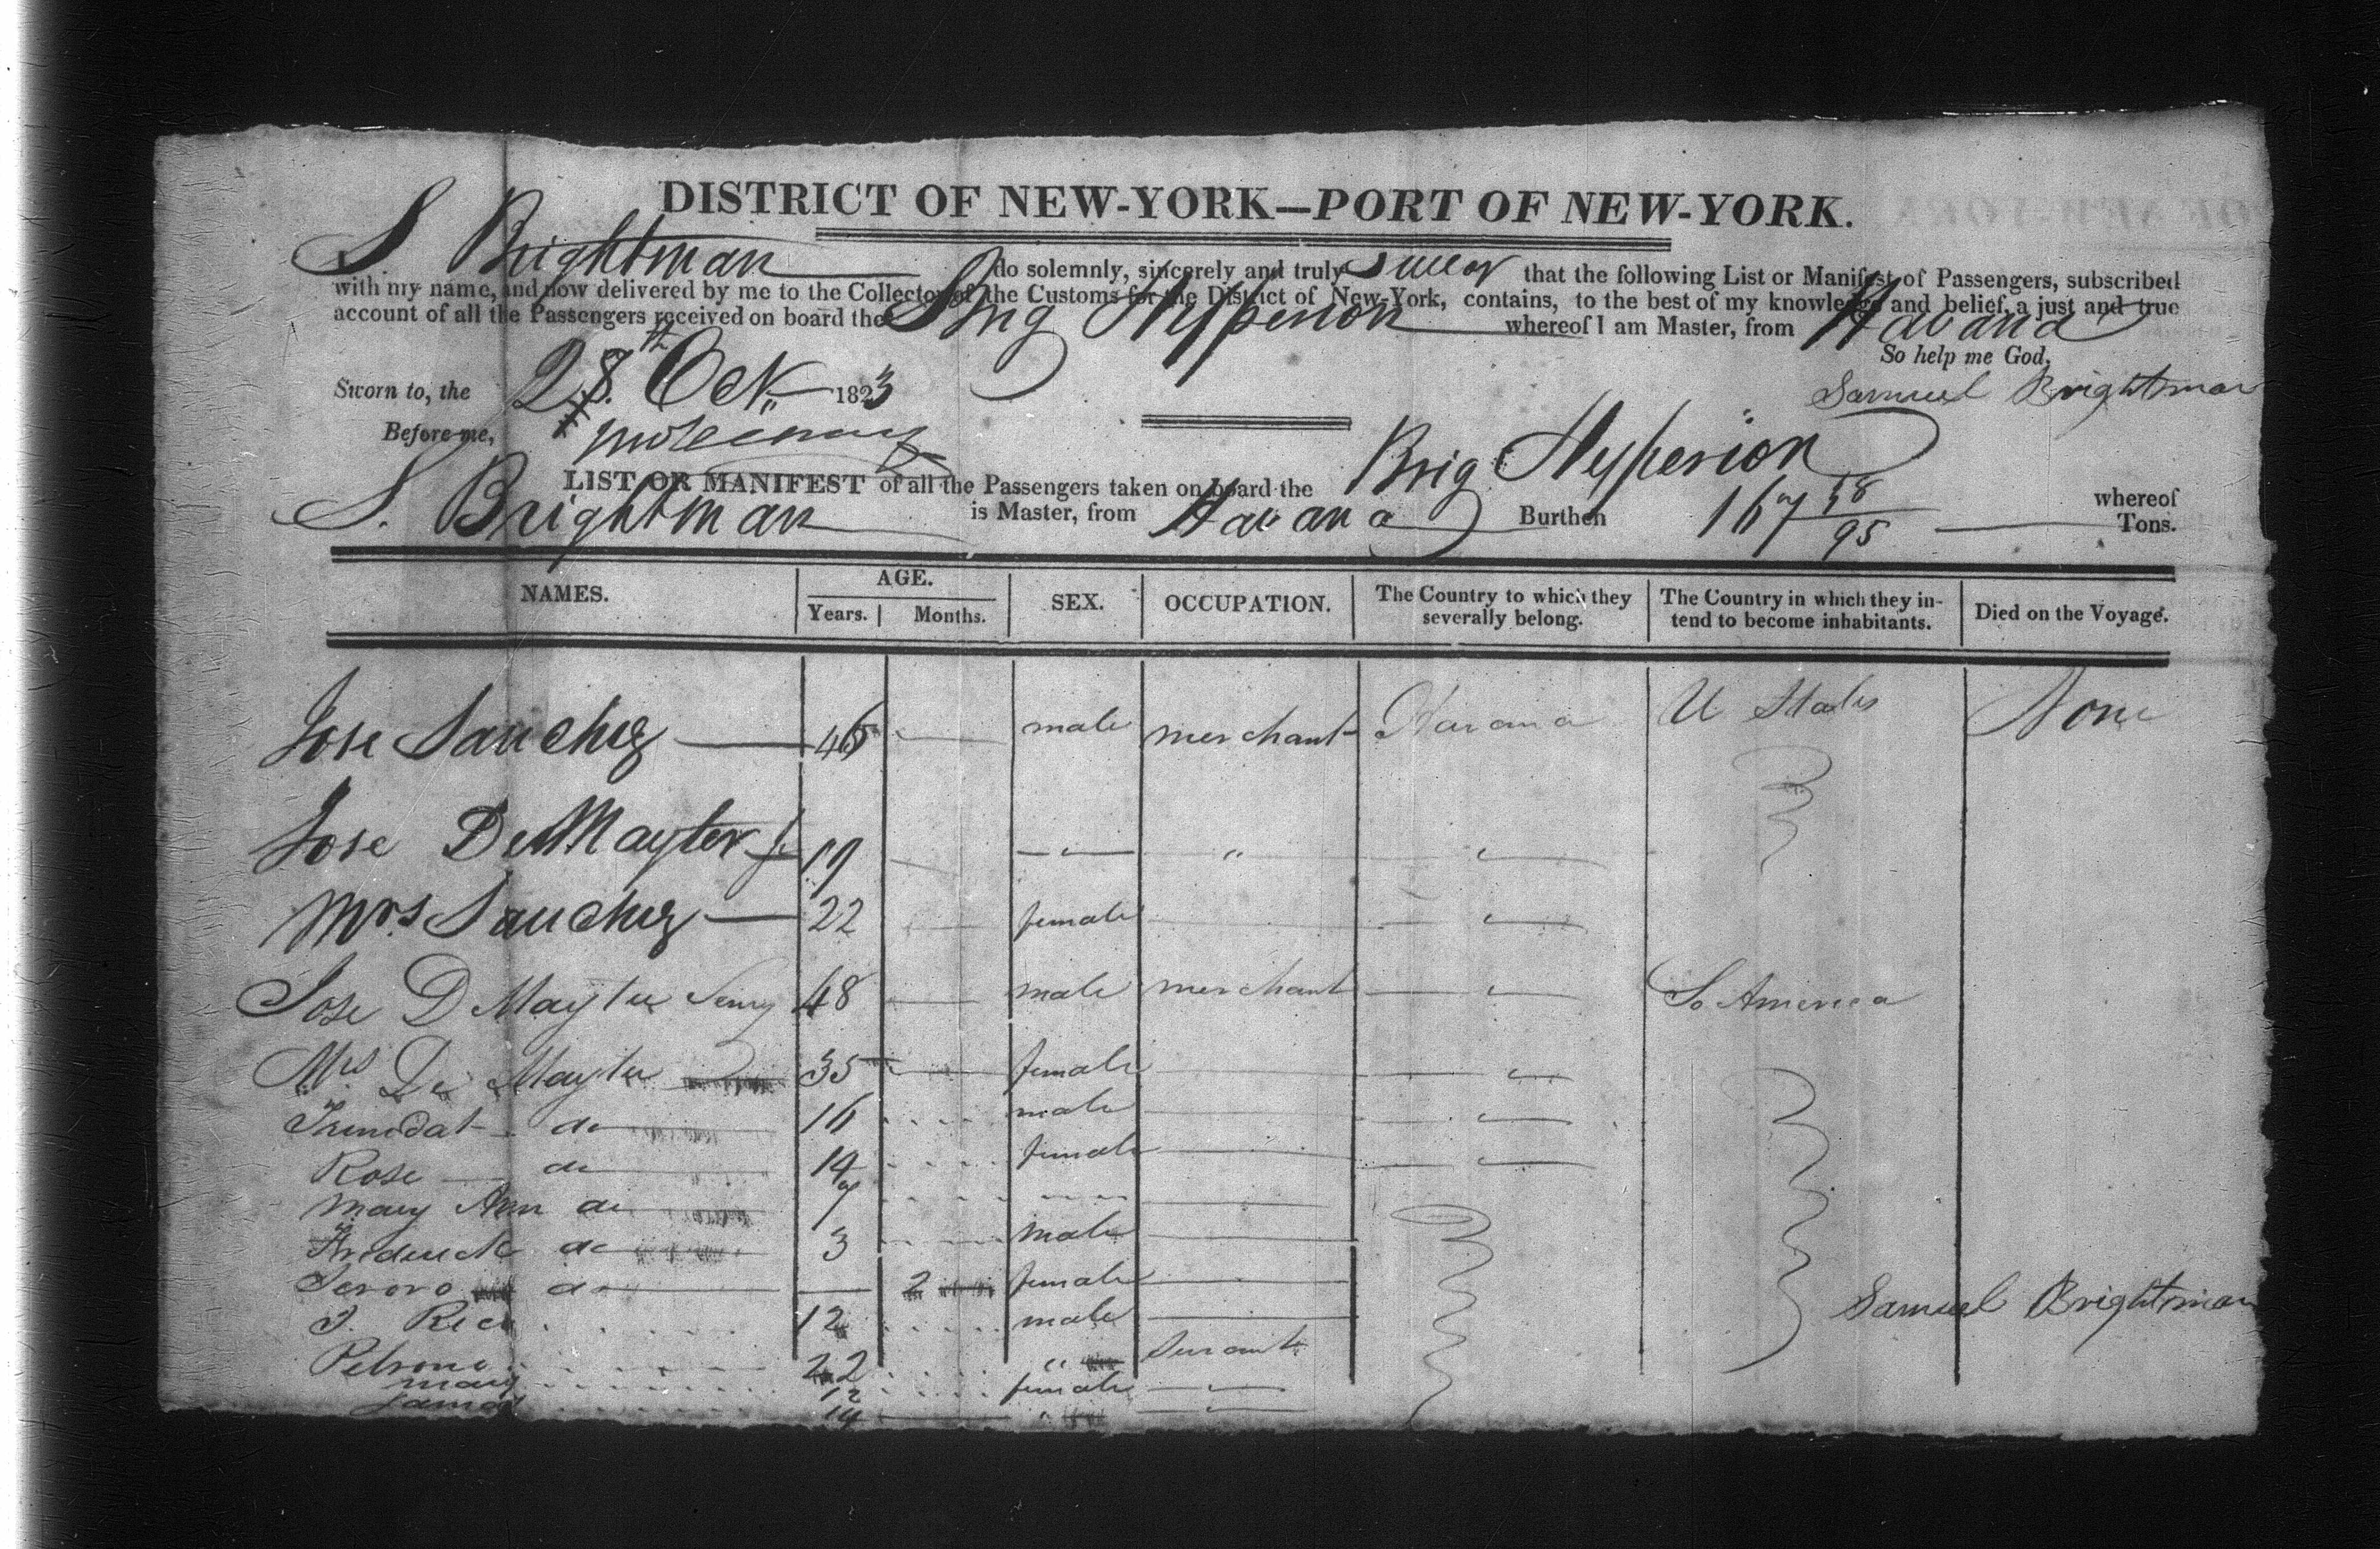 DISTRICT OF NEW-YORK—PORT OF NEW-YORK.
S Brightman do solemnly, sincerely and truly swear that the following List or Manifest of Passengers, subscribed
with my name, and now delivered by me to the Collector of the Customs for the District of New-York, contains, to the best of my knowledge and belief, a just and true
account of all the Passengers received on board the Brig Hyperion whereof I am Master, from Havana
So help me God,
Sworn to, the 28th Oct. 1823 Samuel Brightman
Before me,
LIST OR MANIFEST of all the Passengers taken on board the Brig Hyperion whereof
S. Brightman is Master, from Havana Burthen 167 58/95 Tons.
NAMES. AGE. SEX. OCCUPATION. The Country to which they severally belong. The Country in which they intend to become inhabitants. Died on the Voyage.
Years. Months.
Jose Sanchez 46 male merchant Havana U States None
Jose De Mayter Jr 19 " "
Mrs Sanchez 22 female "
Jose D Mayter 48 male merchant " So America
Mrs De Mayter 35 female "
do 16 male "
Rose do 14 female "
Mary Ann do 7
Frederick do 3 male
do 2 female
J. 12 male
22 " Servant
Mary 12 female "
14 " "
Samuel Brightman